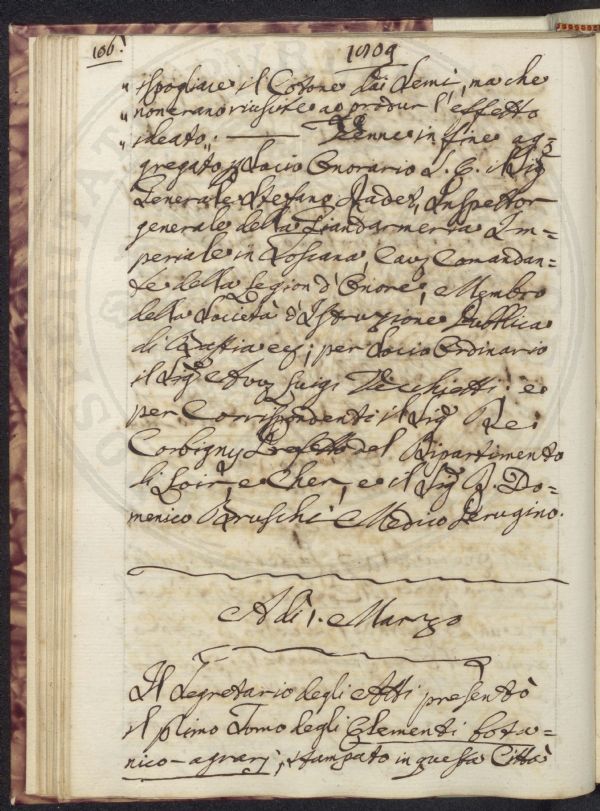 106.
1809
" spogliare il Cotone dai Semi, ma che
" non erano riuscite a produr l'effetto
" ideato. —— Venne in fine ag=
gregato p Socio Onorario S. E. il Sig
Generale Stefano Radet, Inspettor
generale della Giandarmeria Im=
periale in Toscana, Cav Comandan=
te della Legion d'Onore, Membro
della Società d'Istruzione Pubblica
di Bastia ec; per Socio Ordinario
il Sig Avv Luigi Vecchietti: e
per Corrispondenti il Sig De
Corbigny Prefetto del Dipartimento
di Loir, e Cher, e il Sig D. Do=
menico Bruschi Medico Perugino.
A dì 1. Marzo
Il Segretario degli Atti presentò
il primo Tomo degli Elementi bota=
nico-agrarj, stampato in questa Città